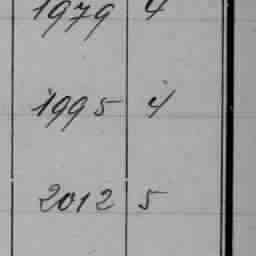 1979 4
1995 4
2012 5